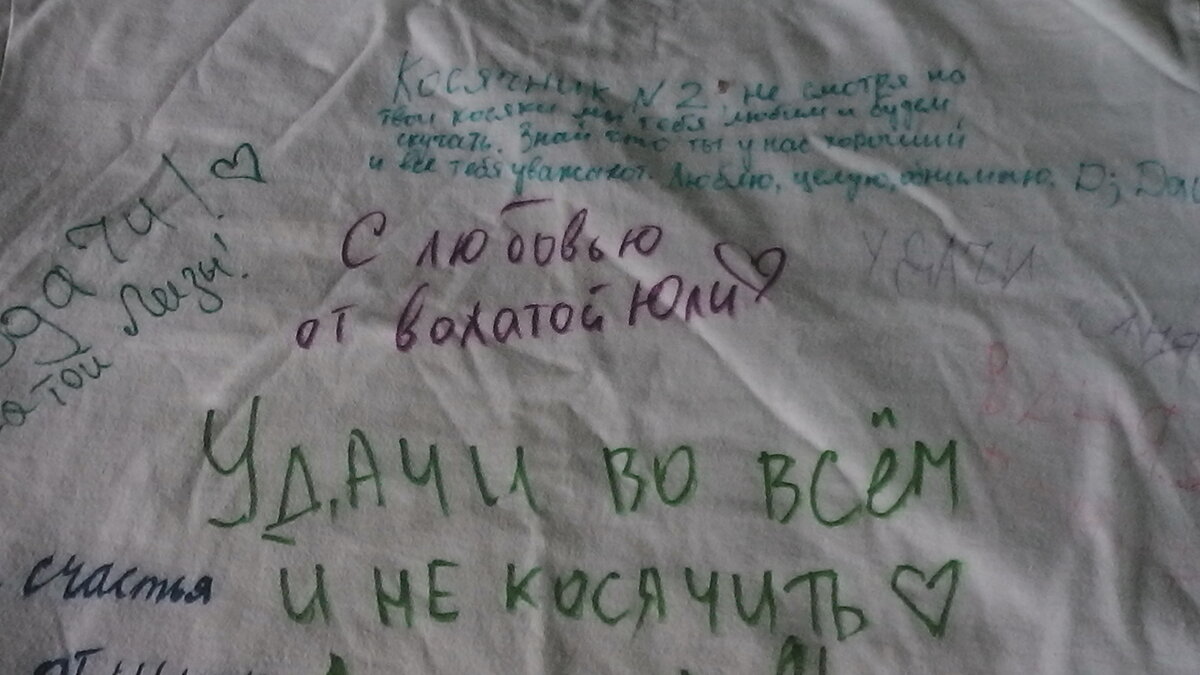 Косячник N2: не смотря на
твои косяки мы тебя любим и будем
скучать. Знай что ты у нас хороший
и все тебя уважают. Люблю, целую, обнимаю. D;
удачи! ♡
Лизы!
С любовью
от вожатой Юли ♡
УДАЧИ
УДАЧИ ВО ВСЁМ
счастья
И НЕ КОСЯЧИТЬ ♡